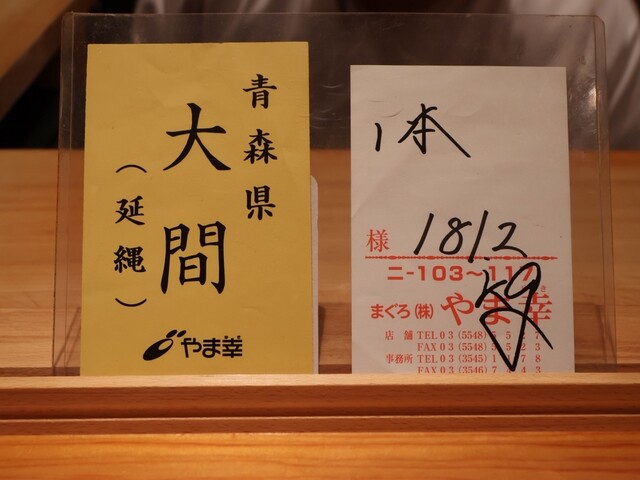 青森県
大間
（延縄）
やま幸
1本
様
181.2
kg
二-103〜117
まぐろ(株)やま幸
店舗 TEL 03(5548)
FAX 03(5548)
事務所 TEL 03(3545)
FAX 03(3546)